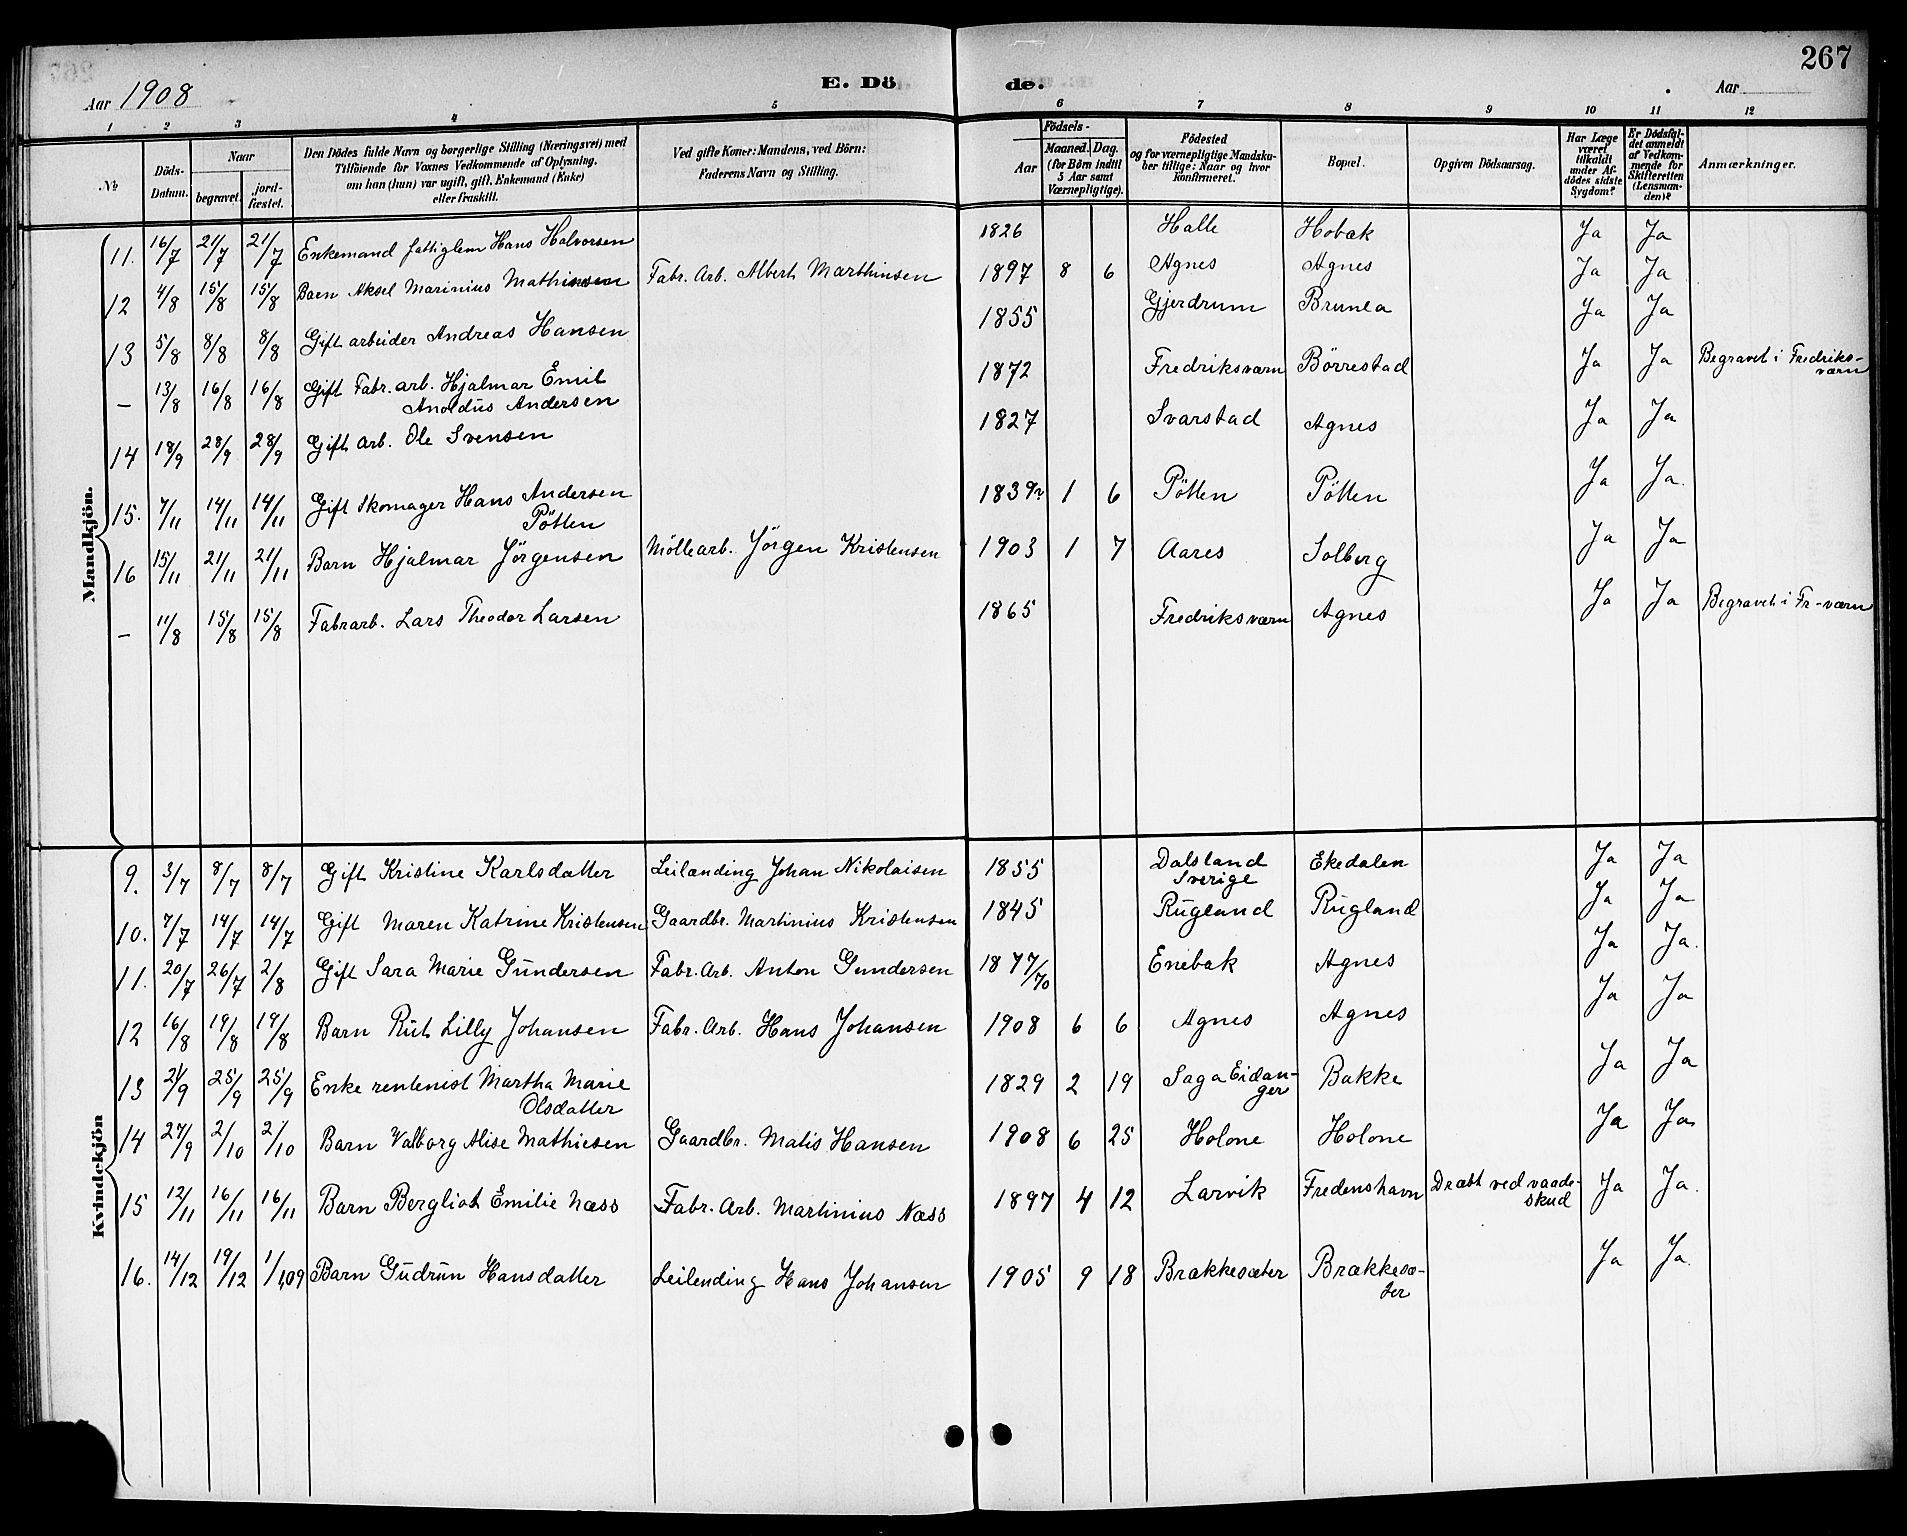 267
Aar 1908
E. Döde.
Aar
1 2 3 4 5 6 7 8 9 10 11 12
No
Döds-Datum.
Naar
begravet.
jord-fæstet.
Den Dödes fulde Navn og borgerlige Stilling (Næringsvei) med
Tilföiende for Voxnes Vedkommende af Oplysning,
om han (hun) var ugift, gift, Enkemand (Enke)
eller fraskilt.
Ved gifte Koner: Mandens, ved Börn:
Faderens Navn og Stilling.
Födsels-
Aar
Maaned. Dag.
(for Börn indtil
5 Aar samt
Værnepligtige).
Födested
og for værnepligtige Mandska-
ber tillige: Naar og hvor
konfirmeret.
Bopæl.
Opgiven Dödsaarsag.
Har Læge
været
tilkaldt
under Af-
dödes sidste
Sygdom?
Er Dödsfal-
det anmeldt
af Vedkom-
mende for
Skifteretten
(Lensman-
den)?
Anmærkninger.
Mandkjön.
11. 16/7 21/7 21/7 Enkemand fattiglem Hans Halvorsen 1826 Halle Hobæk Ja Ja
12 4/8 15/8 15/8 Barn Aksel Marinius Mathinsen Fabr. Arb. Albert Marthinsen 1897 8 6 Agnes Agnes Ja Ja
13 5/8 8/8 8/8 Gift arbeider Andreas Hansen 1855 Gjerdrum Brunla Ja Ja
— 13/8 16/8 16/8 Gift Fabr. arb. Hjalmar Emil
Anoldus Andersen 1872 Fredriksværn Börrestad Ja Ja Begravet i Fredriks-
værn
14 18/9 28/9 28/9 Gift arb. Ole Svensen 1827 Svarstad Agnes Ja Ja
15. 7/11 14/11 14/11 Gift Skomager Hans Andersen
Pötten 1839 1 6 Pötten Pötten Ja Ja.
16 15/11 21/11 21/11 Barn Hjalmar Jörgensen Möllearb. Jörgen Kristensen 1903 1 7 Aares Solberg Ja Ja
— 11/8 15/8 15/8 Fabrarb. Lars Theodor Larsen 1865 Fredriksværn Agnes Ja Ja Begravet i Fr-værn
Kvindekjön
9. 3/7 8/7 8/7 Gift Kristine Karlsdatter Leilænding Johan Nikolaisen 1855 Dalsland
Sverige Ekedalen Ja Ja
10. 7/7 14/7 14/7 Gift Maren Katrine Kristensen Gaardbr. Martinius Kristensen 1845 Rugland Rugland Ja Ja
11. 20/7 26/7 2/8 Gift Sara Marie Gundersen Fabr. Arb. Anton Gundersen 1877/70 Enebak Agnes Ja Ja.
12 16/8 19/8 19/8 Barn Rut Lilly Johansen Fabr. Arb. Hans Johansen 1908 6 6 Agnes Agnes Ja Ja
13 21/9 25/9 25/9 Enke rentenist Martha Marie
Olsdatter 1829 2 19 Saga Eidan-
ger Bakke Ja Ja
14 27/9 2/10 2/10 Barn Valborg Alise Mathiesen Gaardbr. Matis Hansen 1908 6 25 Holone Holone Ja Ja
15 12/11 16/11 16/11 Barn Bergliot Emilie Næss Fabr. Arb. Martinius Næss 1897 4 12 Larvik Fredenshavn Dræbt ved vaade-
skud Ja Ja.
16. 14/12 19/12 1/1,09 Barn Gudrun Hansdatter Leilending Hans Johansen 1905 9 18 Brækkesæter Brækkesæ-
ter Ja Ja.